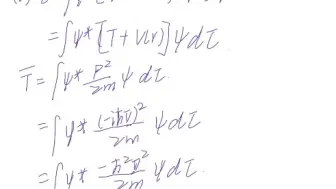 =∫ψ*[T+V(r)]ψdτ
T̄=∫ψ*\frac{P²}{2m}ψdτ.
=∫ψ*\frac{(-iħ∇)²}{2m}ψdτ
=∫ψ*\frac{-ħ²∇²}{2m}ψdτ